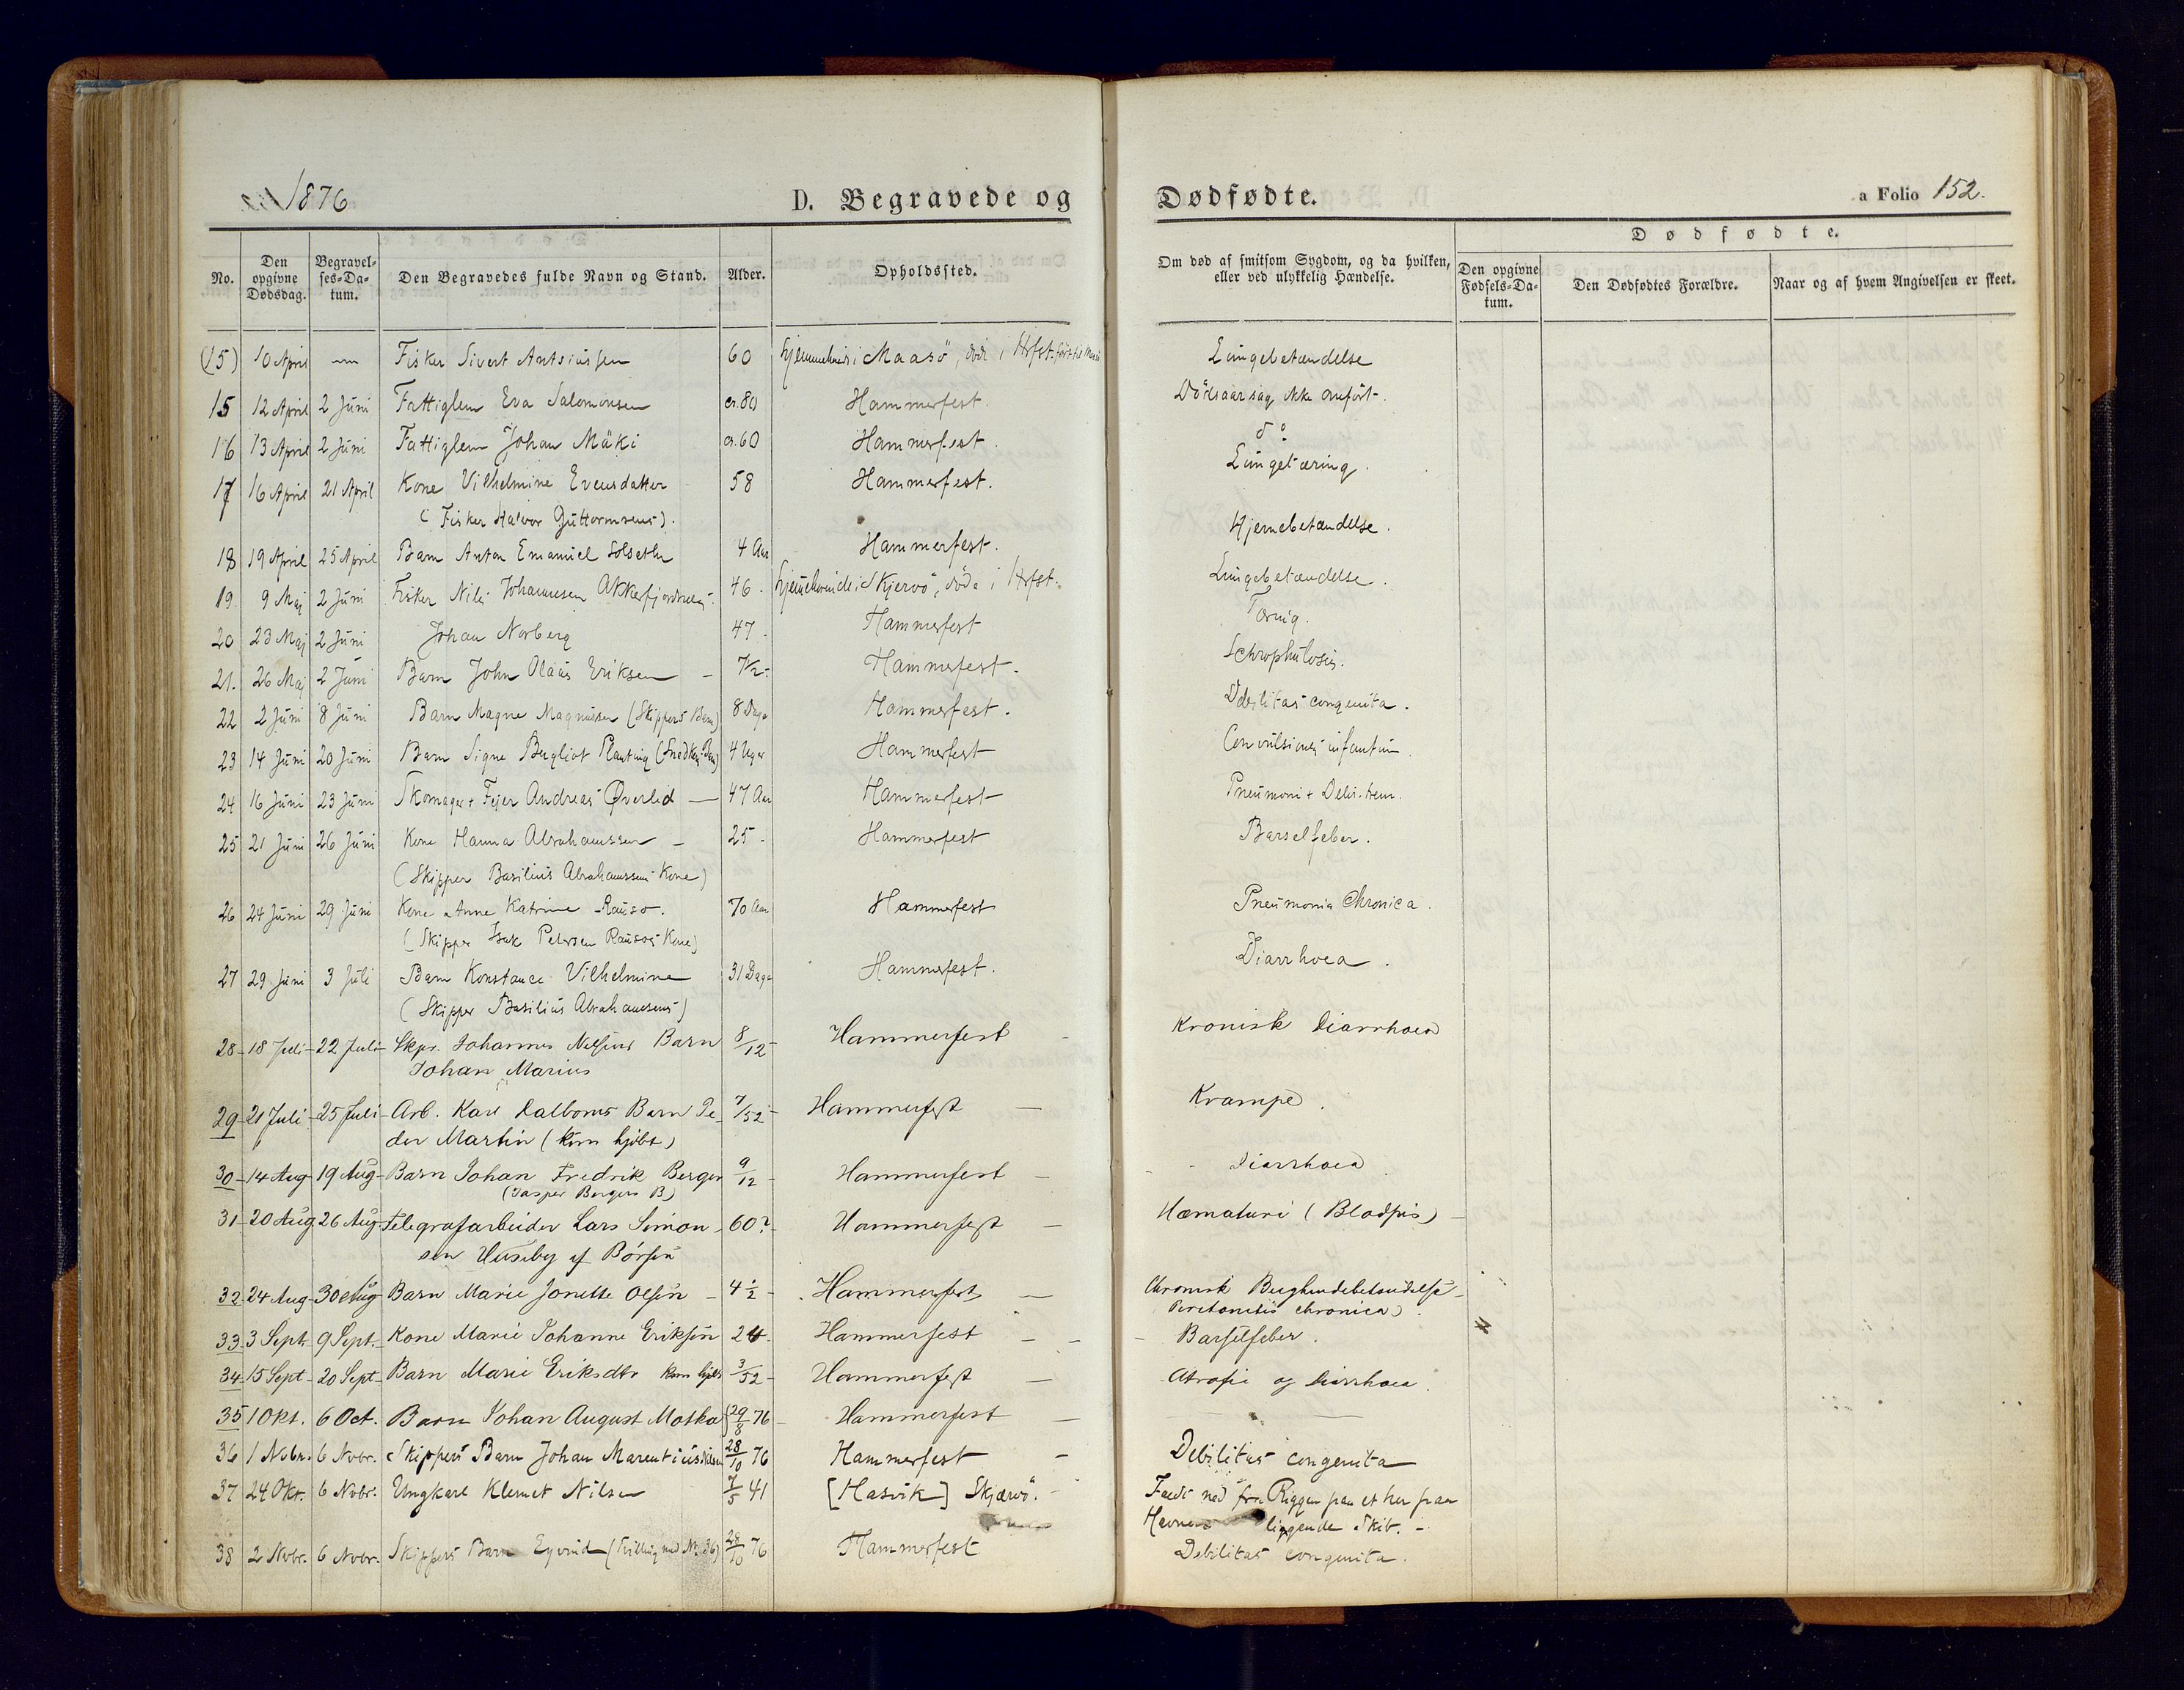 1876 D. Begravede og Dødfødte. a Folio 152.
No. Den opgivne Dødsdag. Begravelses-Datum. Den Begravedes fulde Navn og Stand. Alder. Opholdssted. Om død af smitsom Sygdom, og da hvilken, eller ved ulykkelig Hændelse. Dødfødte. Den opgivne Fødsels-Datum. Den Dødfødtes Forældre. Naar og af hvem Angivelsen er skeet.
(15) 10 April — Fisker Sivert Antsiussen 60 hjemmehørende i Maasö, död i Hfst. Lungebetændelse
15 12 April 2 Juni Fattiglem Eva Salomonsen ca. 80 Hammerfest. Dödsaarsag ikke anfört.
16 13 April 2 Juni Fattiglem Johan Mäki ca. 60 Hammerfest. do
17 16 April 21 April Kone Vilhelmine Evensdatter 58 Hammerfest. Lungetæring.
(Fisker Halvor Guttormsens).
18 19 April 25 April Barn Anton Emanuel Solseth 4 Aar Hammerfest. Hjernebetændelse.
19. 9 Maj 2 Juni Fisker Nils Johannesen Akkerfjord 46. i Skjervö, döde i Hfst. Lungebetændelse.
20 23 Maj 2 Juni Johan Norberg 47. Hammerfest Tæring.
21. 26 Maj 2 Juni Barn John Olaus Eriksen – 7/12. Hammerfest. Schrophulosis.
22 2 Juni 8 Juni Barn Magne Magnussen (Skippers Barn) 8 Dage Hammerfest. Debilitas congenita.
23 14 Juni 20 Juni Barn Signe Bergliot Planting (Snedkers Barn) 4 Uger Hammerfest Convulsiones infantum
24 16 Juni 23 Juni Skomager + Fejer Andreas Øverlid — 47 Aar Hammerfest Pneumoni + Delir. trem.
25 21 Juni 26 Juni Kone Hanna Abrahamssen – 25 - Hammerfest Barselfeber.
(Skipper Basilius Abrahamssens Kone)
26 24 Juni 29 Juni Kone Anne Katrine Rauso. 70 Aar Hammerfest Pneumonia Chronica.
(Skipper Isak Petersen Rausos Kone)
27 29 Juni 3 Juli Barn Konstance Vilhelmine 31 Dage Hammerfest. Diarrhoea.
(Skipper Basilius Abrahamsens)
28 - 18 Juli - 22 Juli - Skpr. Johannes Nilsens Barn 8/12 - Hammerfest - Kronisk Diarrhoea
Johan Marius
29 - 21 Juli - 25 Juli - Arb. Karl Dalboms Barn Pe- 7/52 - Hammerfest — Krampe.
der Martin (kun hjdbt)
30 - 14 Aug - 19 Aug - Barn Johan Fredrik Berger 9/12 - Hammerfest - Diarrhoea
(Jasper Bergers B)
31 - 20 Aug 26 Aug - Telegrafarbeider Lars Simon- 60? - Hammerfest - Hæmaturi (Blodpis) -
sen Huseby af Börsen
32 - 24 Aug - 30 Aug - Barn Marie Jonette Olsen - 4 1/2 - Hammerfest — Chronisk Bughindebetændelse -
Peritonitis chronica).
33 - 3 Sept. 9 Sept. - Kone Marie Johanne Eriksen 24 - Hammerfest - - Barselfeber.
34 - 15 Sept - 20 Sept - Barn Marie Eriksdtr kun hjdbt 3/52 - Hammerfest — Atrofie og Diarrhoea.
35 1 Okt. 6 Oct. Barn Johan August Motka 29/8 76 - Hammerfest —
36 1 Nvbr. 6 Nvbr. Skippers Barn Johan Marentius Nilsen 28/10 76 Hammerfest - Debilitas congenita
37 24 Okt. 6 Nvbr. Ungkarl Klemet Nilsen 7/5 41 [Hasvik] Skjærvö. - Faldt ned fra Riggen paa et her paa
Havnen liggende Skib. -
38 2 Nvbr. 6 Nvbr. Skippers Barn Eyvind (Tvilling med No. 36) 28/10 76 Hammerfest Debilitas congenita.